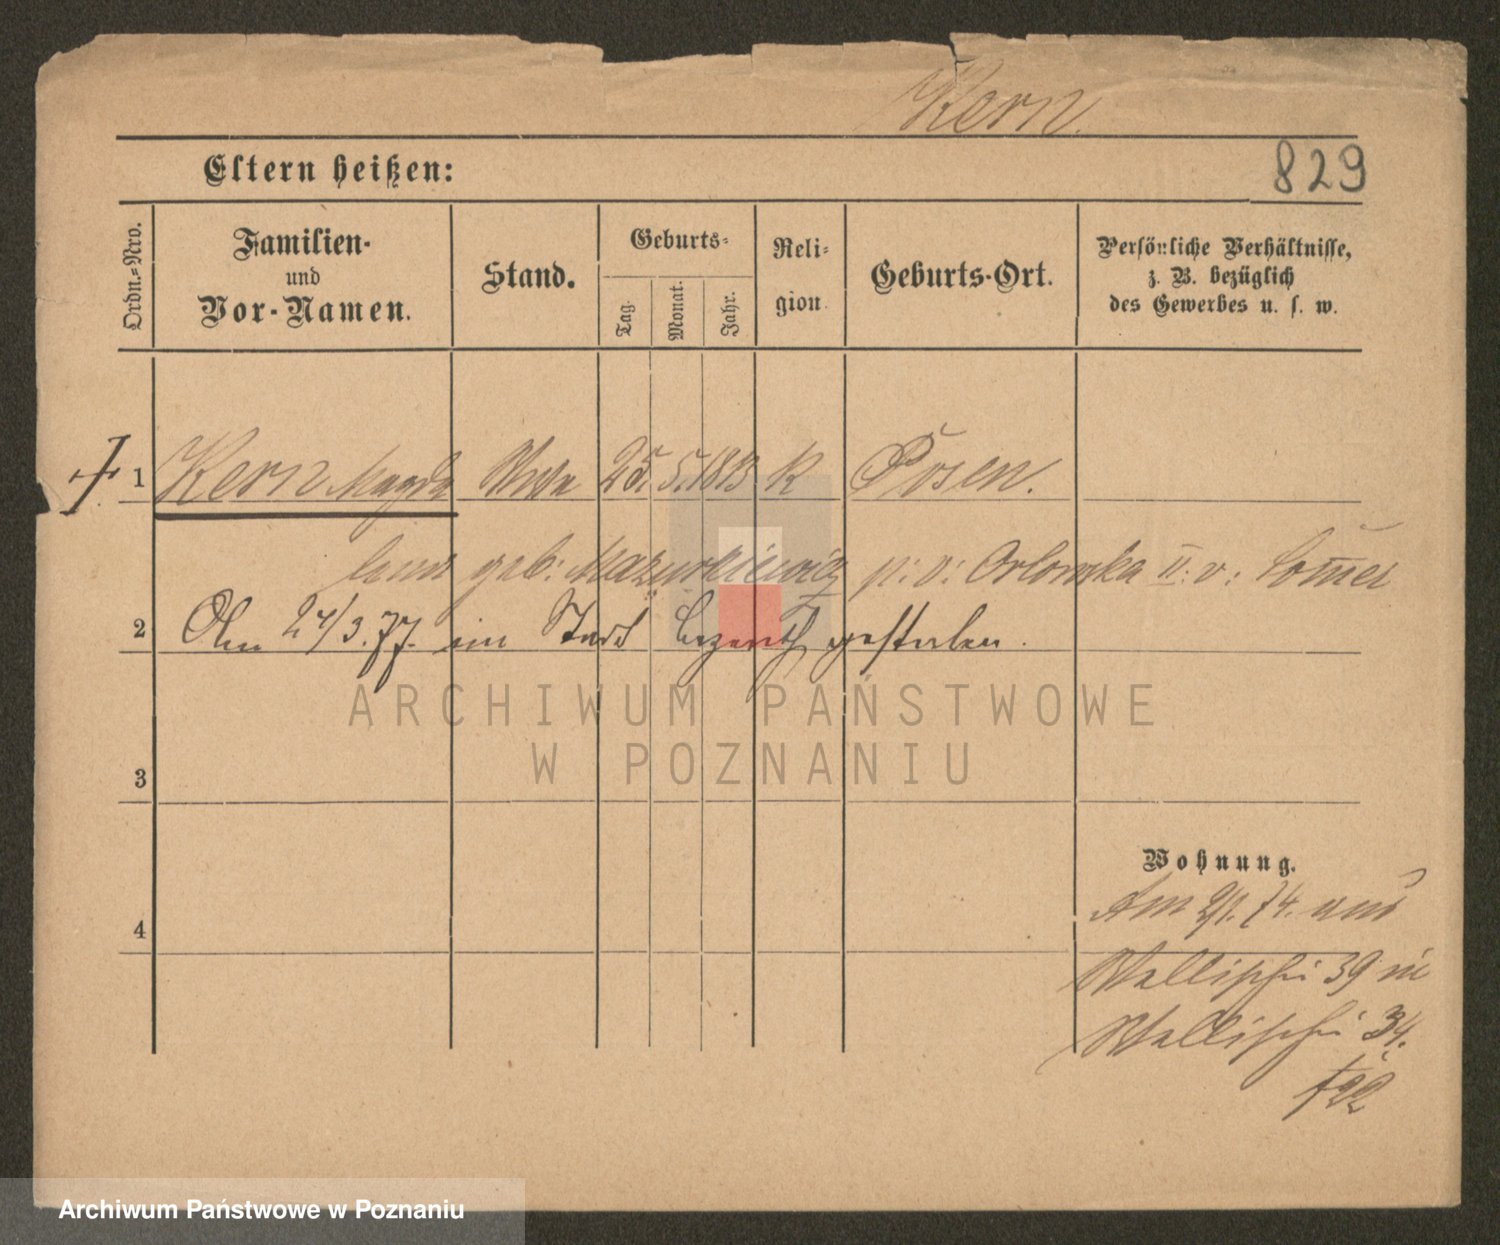 Kern
829
Eltern heißen:
Ordn.-Nro.
Familien-
und
Vor-Namen.
Stand.
Geburts-
Tag.
Monat.
Jahr.
Reli-
gion
Geburts-Ort.
Persönliche Verhältnisse,
z. B. bezüglich
des Gewerbes u. s. w.
1 Kern Magda 25. 5. 1813 K Posen.
lena geb: Mazurkiewicz p: v: Orlowska II: v:
2 Am 24/3. 77. im Stadt gestorben.
ARCHIWUM PAŃSTWOWE
W POZNANIU
3
4
Wohnung.
Am 2/1. 74. aus
Wallischei 39 in
Wallischei 34.
Archiwum Państwowe w Poznaniu